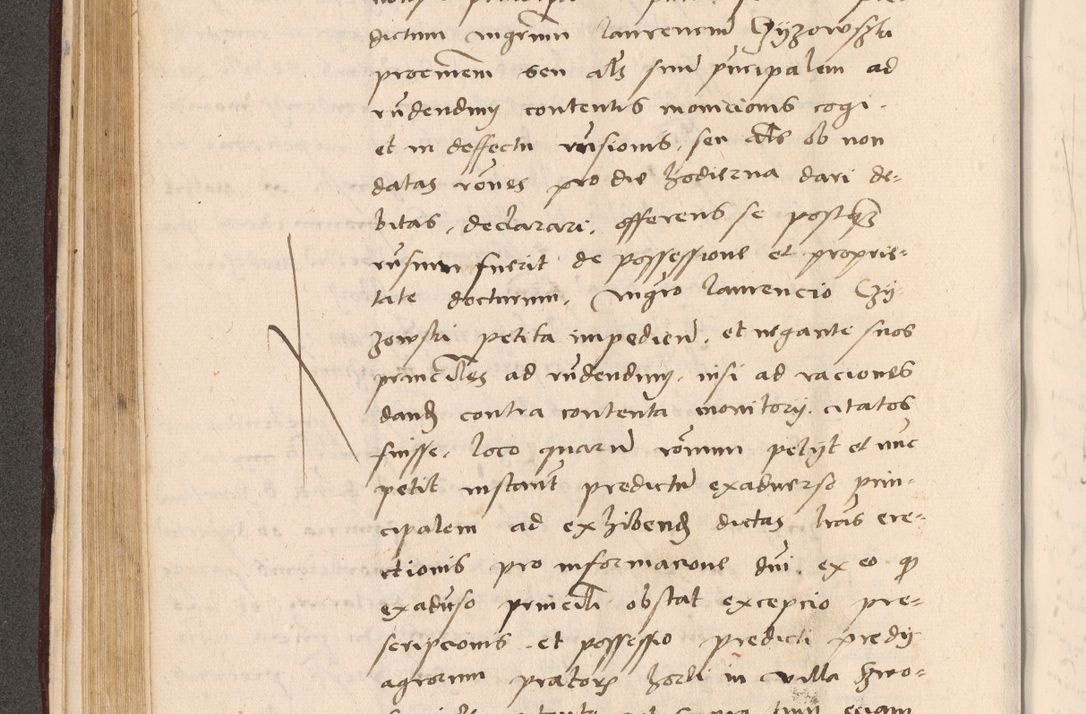 dictum mgrmm laurencm Czyzowski
procmem seu als sunt principalem ad
rndendum contentis monicionis cogi
et in deffectu rnsionis, seu als ob non
datas rones pro die hodierna dari de-
bitas, declarari, offerens se postqz
rnsum fuerit de possessione et proprie-
tate docturum, mgro laurencio Czy-
zowski petita impedien, et negante suos
principales ad rndendum, nisi ad raciones
dand contra contenta monitory citatos
fuisse, loco quaru ronum petyt et nunc
petit instant predictu exaduerso prin-
cipalem ad exhibend dictas lras ere-
ctionis pro informacione dni, ex eo q
exaduso principali obstat excepcio pre-
scripcionis et possessio predicti predy
agrorum pratorz horti in villa